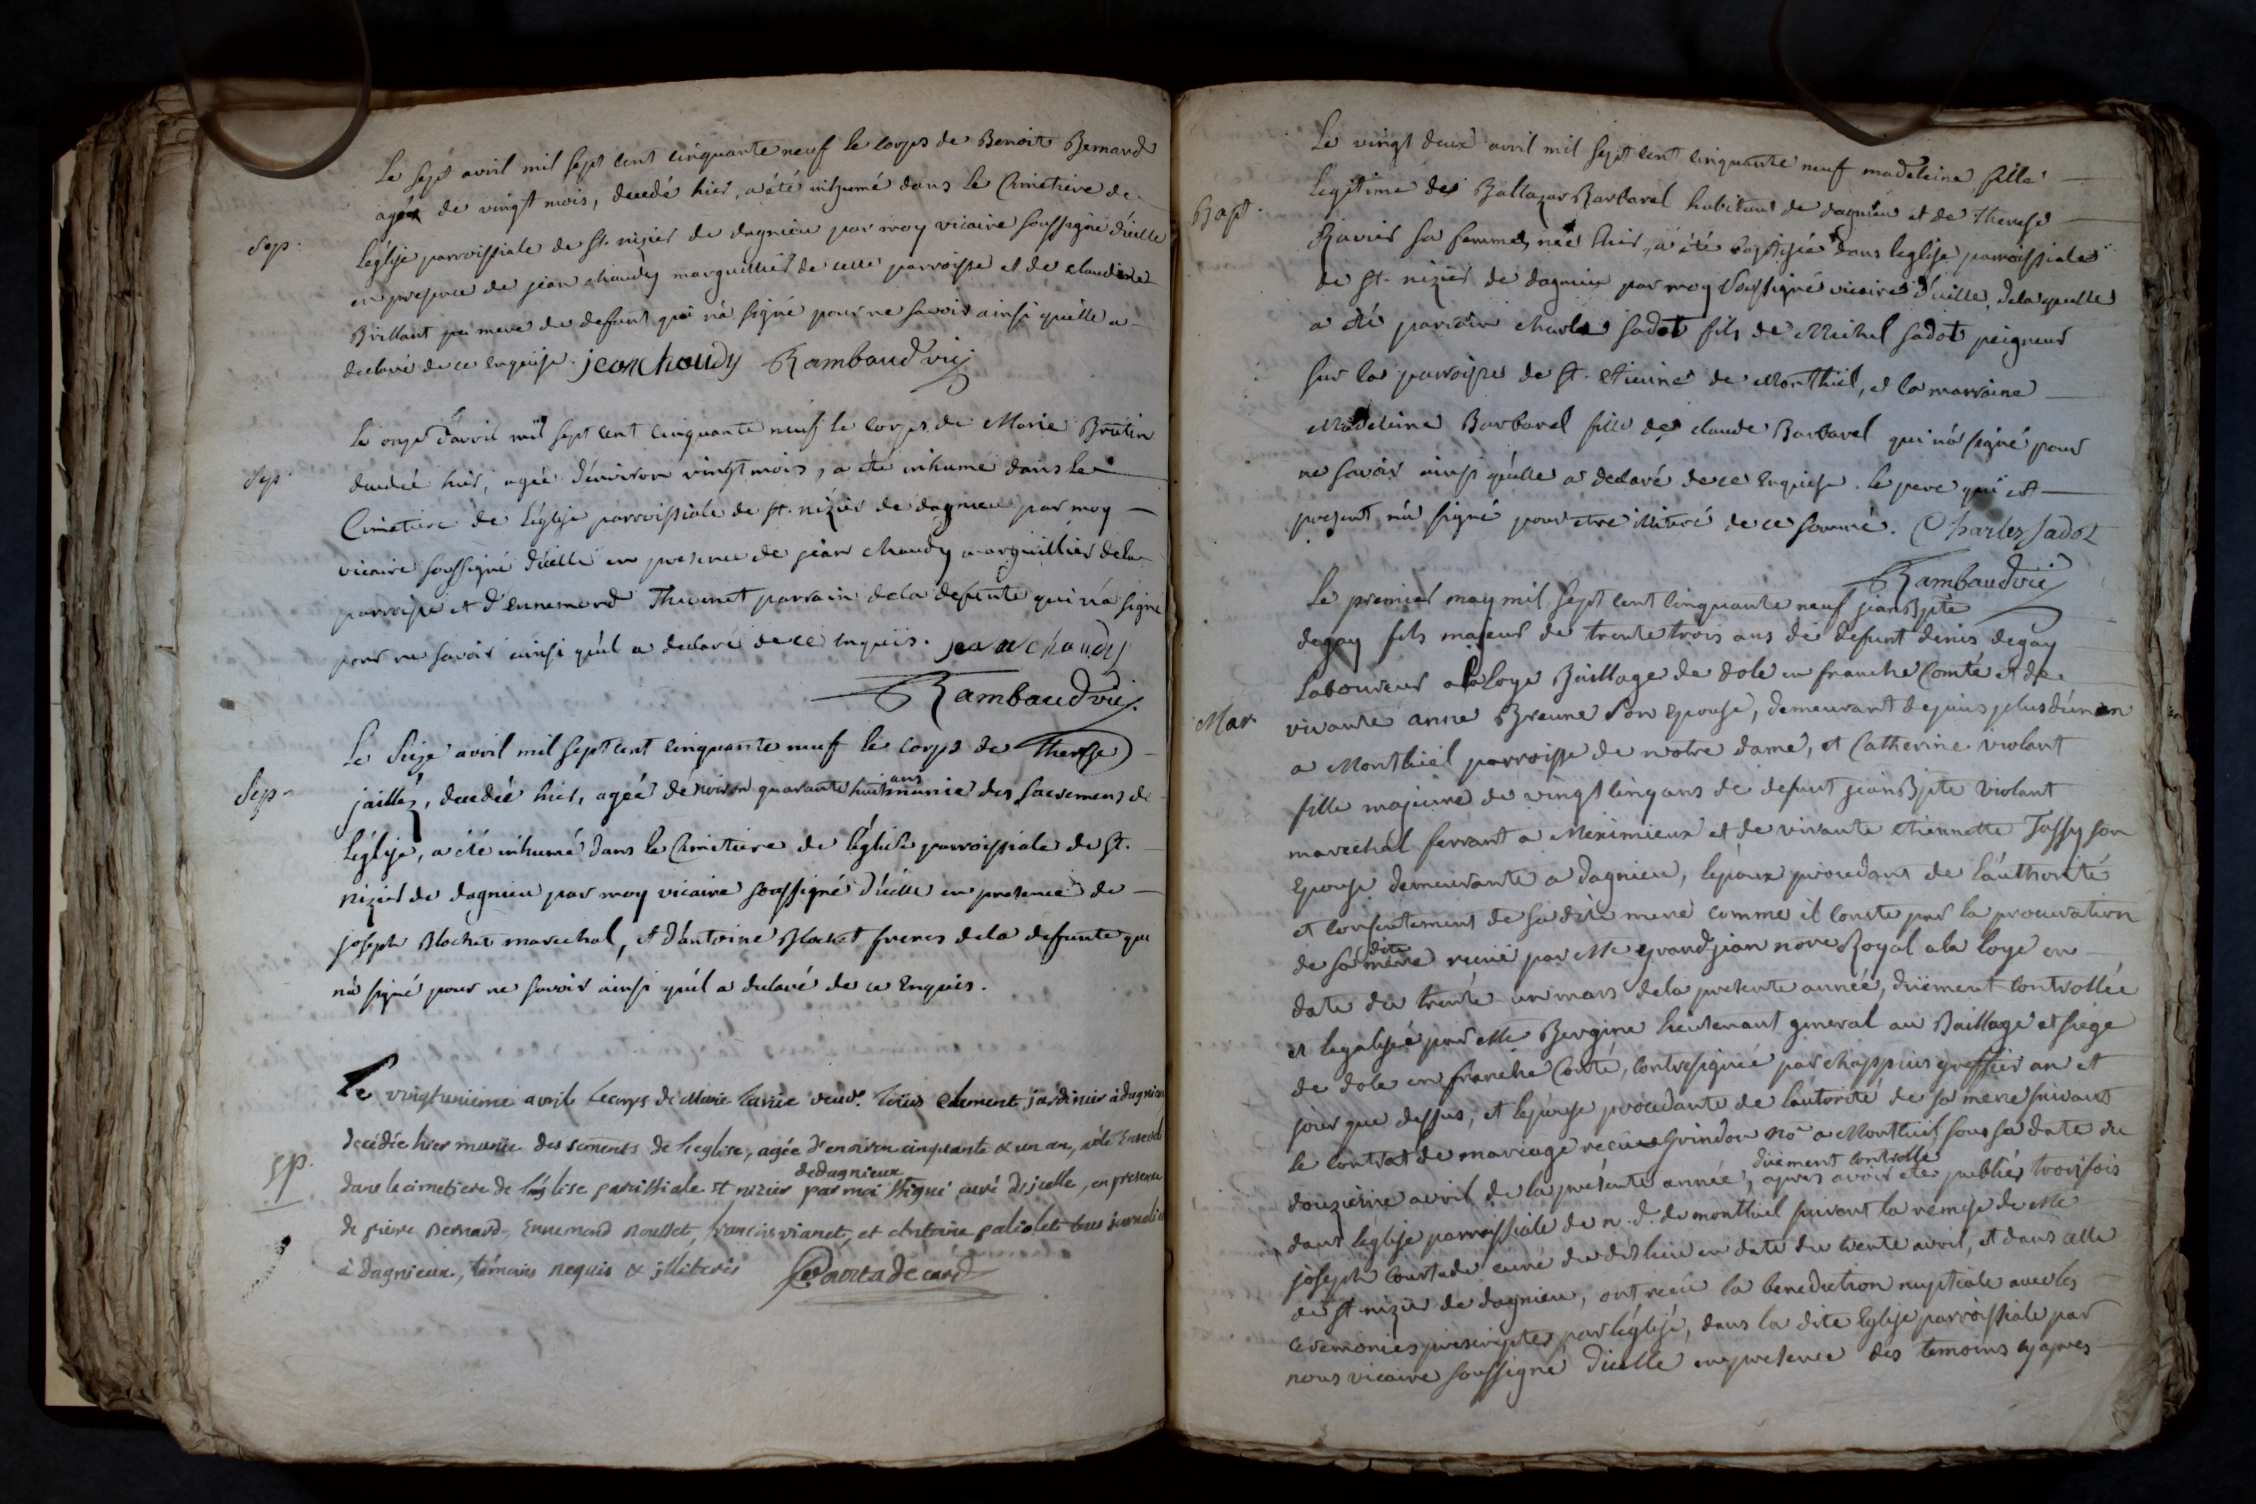 Le sept avril mil sept cent cinquante neuf le corps de Benoit Bernard
agée de vingt mois, decedé hier, a été inhumé dans le Cimetiere de
Sep. l'église parroissiale de St. nizier de dagnieu par moy vicaire soussigné d'icelle
en presence de jean chaudy marguillier de cette parroisse et de claudine
Brillant mere du defunt qui n'a signé pour ne savoir ainsi qu'elle a
declaré de ce enquise. jean chaudy Rambaud vic.
Le onze d'avril mil sept cent cinquante neuf le corps de Marie Brutin
Sep. decedée hier, agée d'environ vingt mois, a été inhumé dans le
Cimetiere de l'église parroissiale de St. nizier de dagnieu par moy
vicaire soussigné d'icelle en presence de jean chaudy marguillier de la
parroisse et d'ennemond Thevenet parrain de la defunte qui n'a signé
pour ne savoir ainsi qu'il a declaré de ce enquis. jean chaudy
Rambaud vic.
Le seize avril mil sept cent cinquante neuf le corps de Therese
Sep. jaillez, decedée hier, agée d'environ quarante huit ans munie des sacremens de
l'église, a été inhumé dans le Cimetiere de l'église parroissiale de St.
nizier de dagnieu par moy vicaire soussigné d'icelle en presence de
joseph Blochet marechal, et d'antoine Blochet freres de la defunte qui
n'a signé pour ne savoir ainsi qu'il a declaré de ce enquis.
Le vingtunieme avril le corps de Marie veuve Loüis clement jardinier à dagnieu
decedée hier munie des scments de l'eglise, agée d'environ cinquante & un an, a été
Sp. dans le cimetiere de l'église paroissiale St nizier de dagnieux par moi ssigné curé d'jcelle, en presence
de pierre Bernard, Ennemond Roullet, francois vianet, et Antoine paliolet tous
à dagnieux, témoins requis & jlliterés Courtade curé
Le vingt deux avril mil sept cent cinquante neuf madeleine fille
Bapt. legitime de Baltazar Barbarel habitant de dagnieu et de Therese
Ravier sa femme, née hier, a été baptisée dans leglise parroissiale
de St. nizier de dagnieu par moy soussigné vicaire d'icelle, de laquelle
a été parrain charle sadot fils de Michel sadot peigneur
sur la parroisse de St. Etienne de Montluël, et la marraine
Madeleine Barbarel fille de claude Barbarel qui n'a signé pour
ne savoir ainsi qu'elle a declaré de ce enquise. le pere qui est
present n'a signé pour etre illiteré de ce sommé. Charles Sadot
Rambaud vic
Le premier may mil sept cent cinquante neuf jean Bpte
degay fils majeur de trente trois ans de defunt denis degay
Laboureur a la Loye Baillage de dole en franche Comté et de
Mar. vivante anne Breune son epouse, demeurant depuis plus d'un an
a Montluël parroisse de notre dame, et Catherine violant
fille majeure de vingt cinq ans de defunt jean Bpte violant
marechal ferrant a Meximieux et de vivante etiennette Jussy son
Epouse demeurante a dagnieu, l'epoux procedant de l'authorité
et consentement de sa dite mere comme il conste par la procuration
de sa dite mere recüe par Me grandjean nore Royal a la loye en
date du trente un mars de la presente année, düement controllée
et legalisée par Me Bergine lieutenant general au Baillage et siege
de dole en franche Comté, contresignée par chappuis greffier an et
jour que dessus, et l'epouse procedante de l'autorité de sa mere suivant
le contrat de mariage reçu Grindon no.re a Montluël sous sa date du
douzième avril de la présente année, düement controllé, apres avoir eté publiés trois fois
dans l'église parroissiale de n. d. de montluel suivant la remise de Me
joseph Courtade curé du dit lieu en date du trente avril, et dans celle
de St nizier de dagnieu, ont reçu la benediction nuptiale avec les
ceremonies prescriptes par l'église, dans la dite Eglise parroissiale par
nous vicaire soussigné d'icelle en presence des temoins cy apres